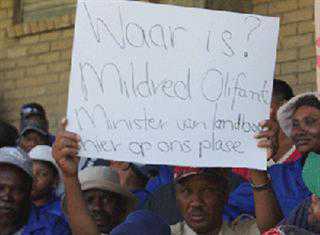 Waar is?
Mildred Olifant
Minister van landbou
hier op ons plase